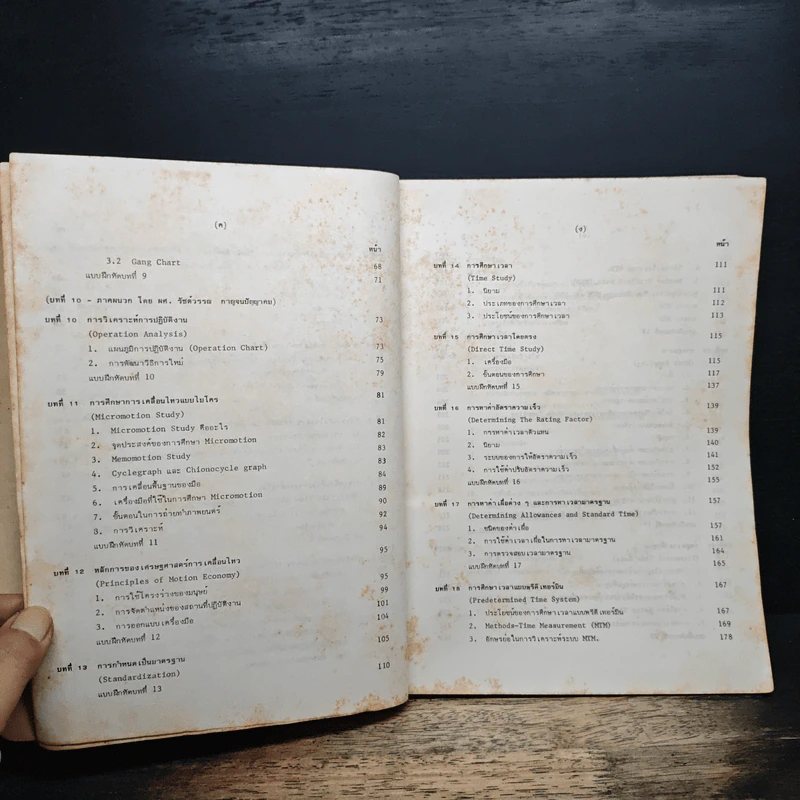 (ค)
หน้า
3.2 Gang Chart 68
แบบฝึกหัดบทที่ 9 71
(บทที่ 10 - ภาคผนวก โดย ผศ. รัชต์วรรณ กาญจนปัญญาคม)
บทที่ 10 การวิเคราะห์การปฏิบัติงาน 73
(Operation Analysis)
1. แผนภูมิการปฏิบัติงาน (Operation Chart) 73
2. การพัฒนาวิธีการใหม่ 75
แบบฝึกหัดบทที่ 10 79
บทที่ 11 การศึกษาการเคลื่อนไหวแบบไมโคร 81
(Micromotion Study)
1. Micromotion Study คืออะไร 81
2. จุดประสงค์ของการศึกษา Micromotion 82
3. Memomotion Study 83
4. Cyclegraph และ Chionocycle graph 84
5. การเคลื่อนพื้นฐานของมือ 89
6. เครื่องมือที่ใช้ในการศึกษา Micromotion 90
7. ขั้นตอนในการถ่ายทำภาพยนตร์ 92
8. การวิเคราะห์ 94
แบบฝึกหัดบทที่ 11
บทที่ 12 หลักการของเศรษฐศาสตร์การเคลื่อนไหว 95
(Principles of Motion Economy)
1. การใช้โครงร่างของมนุษย์ 95
2. การจัดตำแหน่งของสถานที่ปฏิบัติงาน 99
3. การออกแบบเครื่องมือ 101
แบบฝึกหัดบทที่ 12 104
บทที่ 13 การกำหนดเป็นมาตรฐาน 105
(Standardization)
แบบฝึกหัดบทที่ 13 110
(ง)
หน้า
บทที่ 14 การศึกษาเวลา 111
(Time Study)
1. นิยาม 111
2. ประเภทของการศึกษาเวลา 112
3. ประโยชน์ของการศึกษาเวลา 113
บทที่ 15 การศึกษาเวลาโดยตรง 115
(Direct Time Study)
1. เครื่องมือ 115
2. ขั้นตอนของการศึกษา 117
แบบฝึกหัดบทที่ 15 137
บทที่ 16 การหาค่าอัตราความเร็ว 139
(Determining The Rating Factor)
1. การหาค่าเวลาตัวแทน 139
2. นิยาม 140
3. ระบบของการให้อัตราความเร็ว 141
4. การใช้ค่าปรับอัตราความเร็ว 152
แบบฝึกหัดบทที่ 16 155
บทที่ 17 การหาค่าเผื่อต่าง ๆ และการหาเวลามาตรฐาน 157
(Determining Allowances and Standard Time)
1. ชนิดของค่าเผื่อ 157
2. การใช้ค่าเวลาเผื่อในการหาเวลามาตรฐาน 161
3. การตรวจสอบเวลามาตรฐาน 164
แบบฝึกหัดบทที่ 17 165
บทที่ 18 การศึกษาเวลาแบบพรีดีเทอร์มิน 167
(Predetermined Time System)
1. ประโยชน์ของการศึกษาเวลาแบบพรีดีเทอร์มิน 167
2. Methods-Time Measurement (MTM) 169
3. อักษรย่อในการวิเคราะห์ระบบ MTM. 178